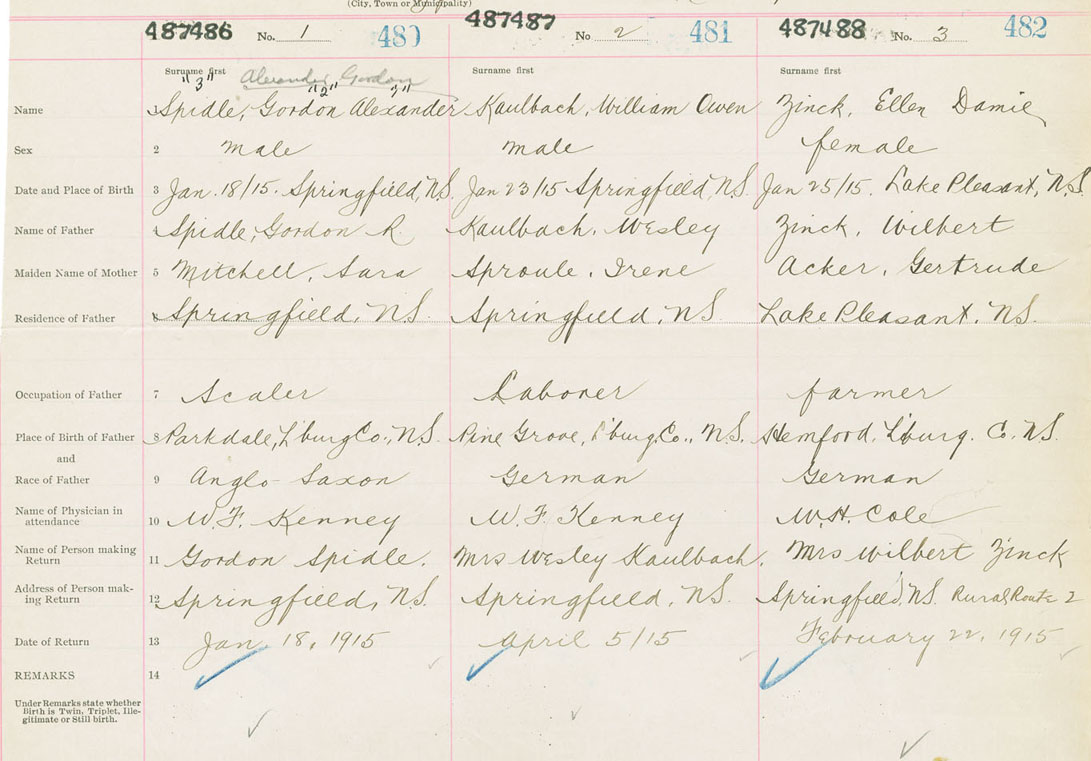 (City, Town or Municipality)
487486 No. 1 480 487487 No 2 481 487488 No. 3 482
Surname first Surname first Surname first
"3" Alexander Gordon
"2" "1"
Name 1 Spidle, Gordon Alexander Kaulbach, William Owen Zinck, Ellen Damie
Sex 2 male male female
Date and Place of Birth 3 Jan. 18/15. Springfield, N.S. Jan 23/15 Springfield, N.S. Jan 25/15. Lake Pleasant, N.S.
Name of Father 4 Spidle, Gordon R. Kaulbach, Wesley Zinck, Wilbert
Maiden Name of Mother 5 Mitchell, Sara Sproule, Irene Acker, Gertrude
Residence of Father 6 Springfield, N.S. Springfield, N.S. Lake Pleasant, N.S.
Occupation of Father 7 Scaler Laborer farmer
Place of Birth of Father 8 Parkdale, L'burg Co., N.S. Pine Grove, L'burg. Co., N.S. Hemford, L'burg. Co. N.S.
and
Race of Father 9 Anglo-Saxon German German
Name of Physician in
attendance 10 W.F. Kenney W.F. Kenney W.H. Cole
Name of Person making
Return 11 Gordon Spidle. Mrs Wesley Kaulbach. Mrs Wilbert Zinck
Address of Person mak-
ing Return 12 Springfield, N.S. Springfield, N.S. Springfield, N.S. Rural Route 2
Date of Return 13 Jan. 18, 1915 April 5/15 February 22, 1915
REMARKS 14
Under Remarks state whether
Birth is Twin, Triplet, Ille-
gitimate or Still birth.